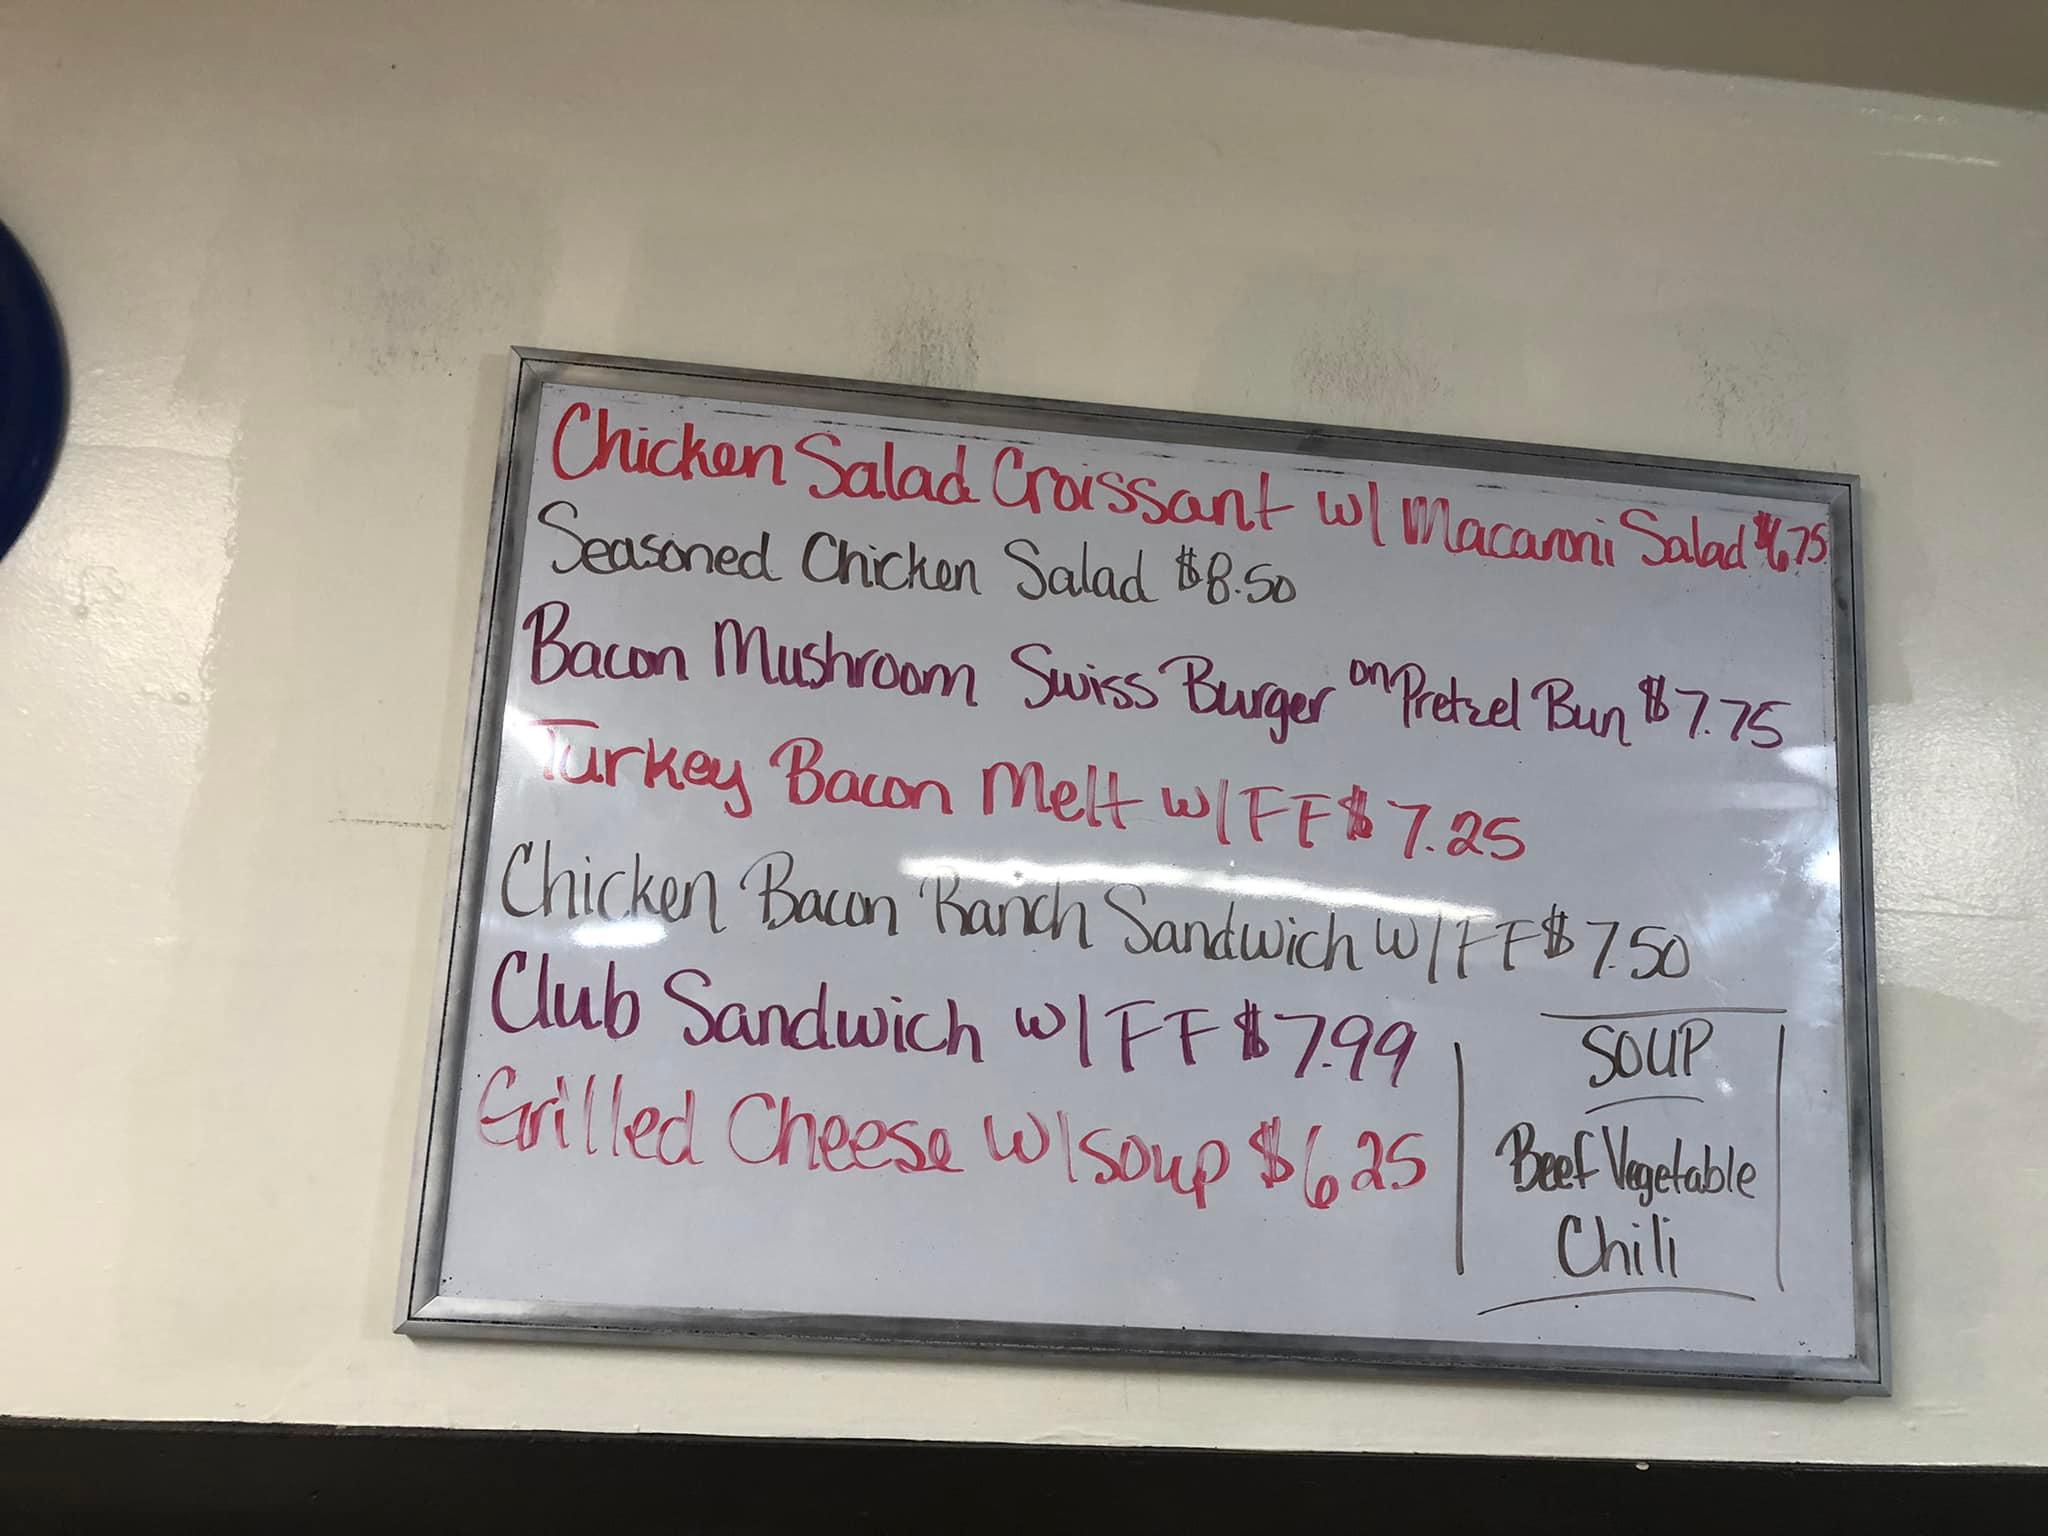 Chicken Salad Croissant w/ Macaroni Salad $6.75
Seasoned Chicken Salad $8.50
Bacon Mushroom Swiss Burger on Pretzel Bun $7.75
Turkey Bacon Melt w/FF $7.25
Chicken Bacon Ranch Sandwich w/FF $7.50
Club Sandwich w/FF $7.99
Grilled Cheese w/soup $6.25
SOUP
Beef Vegetable
Chili